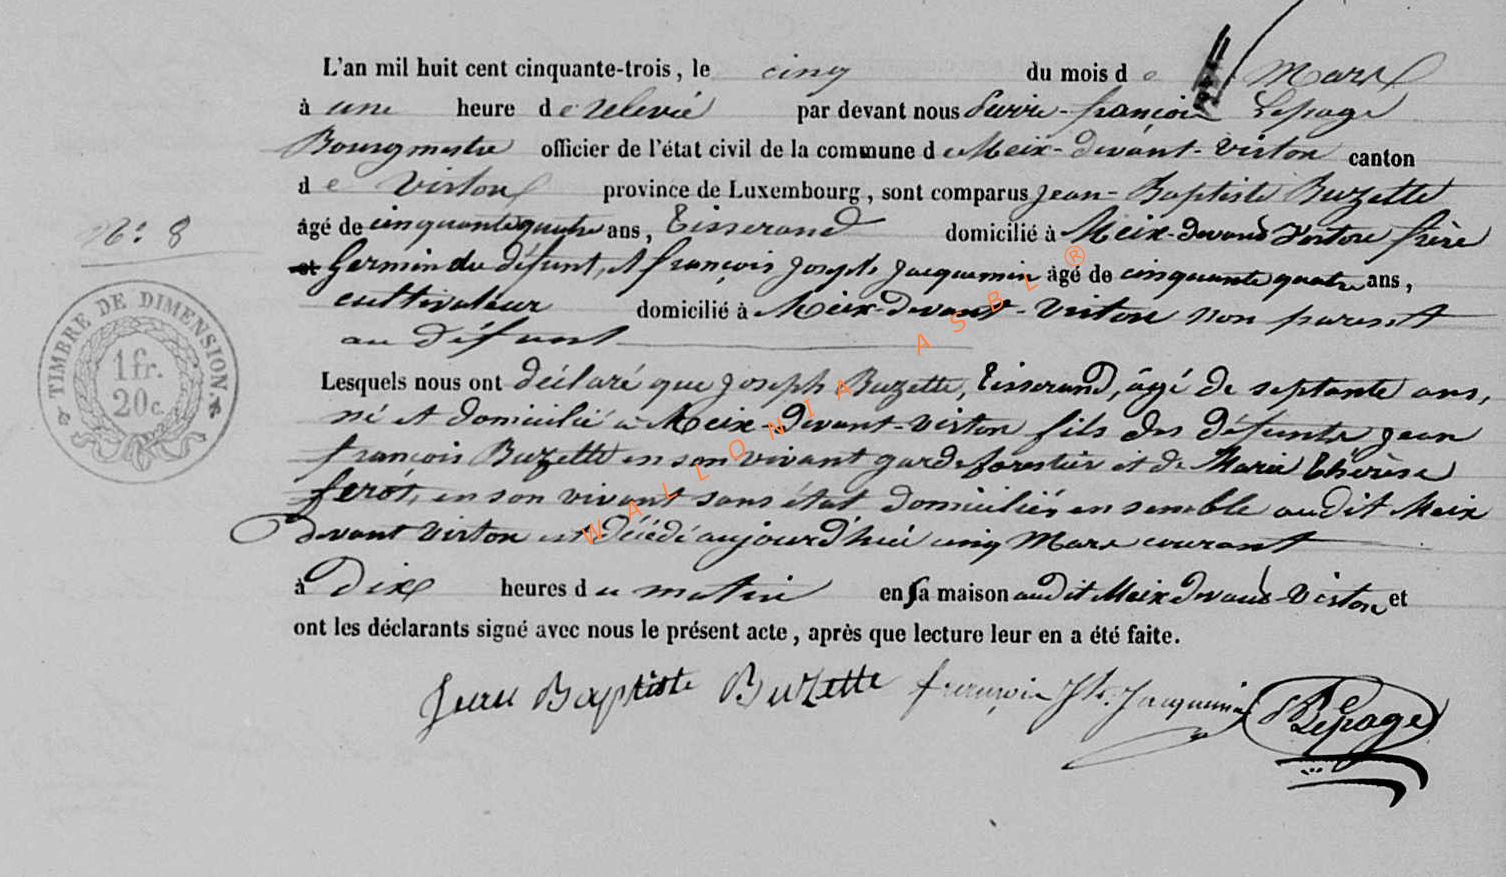 L'an mil huit cent cinquante-trois, le cinq du mois de Mars
à une heure de relevé par devant nous Pierre-françois Lepage
Bourgmestre officier de l'état civil de la commune de Meix-devant-Virton canton
de Virton province de Luxembourg, sont comparus Jean-Baptiste Buzette
âgé de cinquante quatre ans, Tisserand domicilié à Meix-devant Virton frère
et Germin du défunt, et françois Joseph Jacquemin âgé de cinquante quatre ans,
cultivateur domicilié à Meix-devant-Virton non parent
au défunt
Lesquels nous ont déclaré que Joseph Buzette, Tisserand, âgé de septante ans,
né et domicilié à Meix-devant-Virton fils des défunts Jean
françois Buzette en son vivant garde forestier et de Marie Thérèse
ferot, en son vivant sans état domiciliés ensemble audit Meix
devant Virton est décédé aujourd'hui cinq Mars courant
à Dix heures du matin en sa maison audit Meix devant-Virton et
ont les déclarants signé avec nous le présent acte, après que lecture leur en a été faite.
Jean Baptiste Buzette françois Jh. Jacquemin Lepage
N.° 8
TIMBRE DE DIMENSION
1 fr.
20 c.
WALLONIA ASBL ®